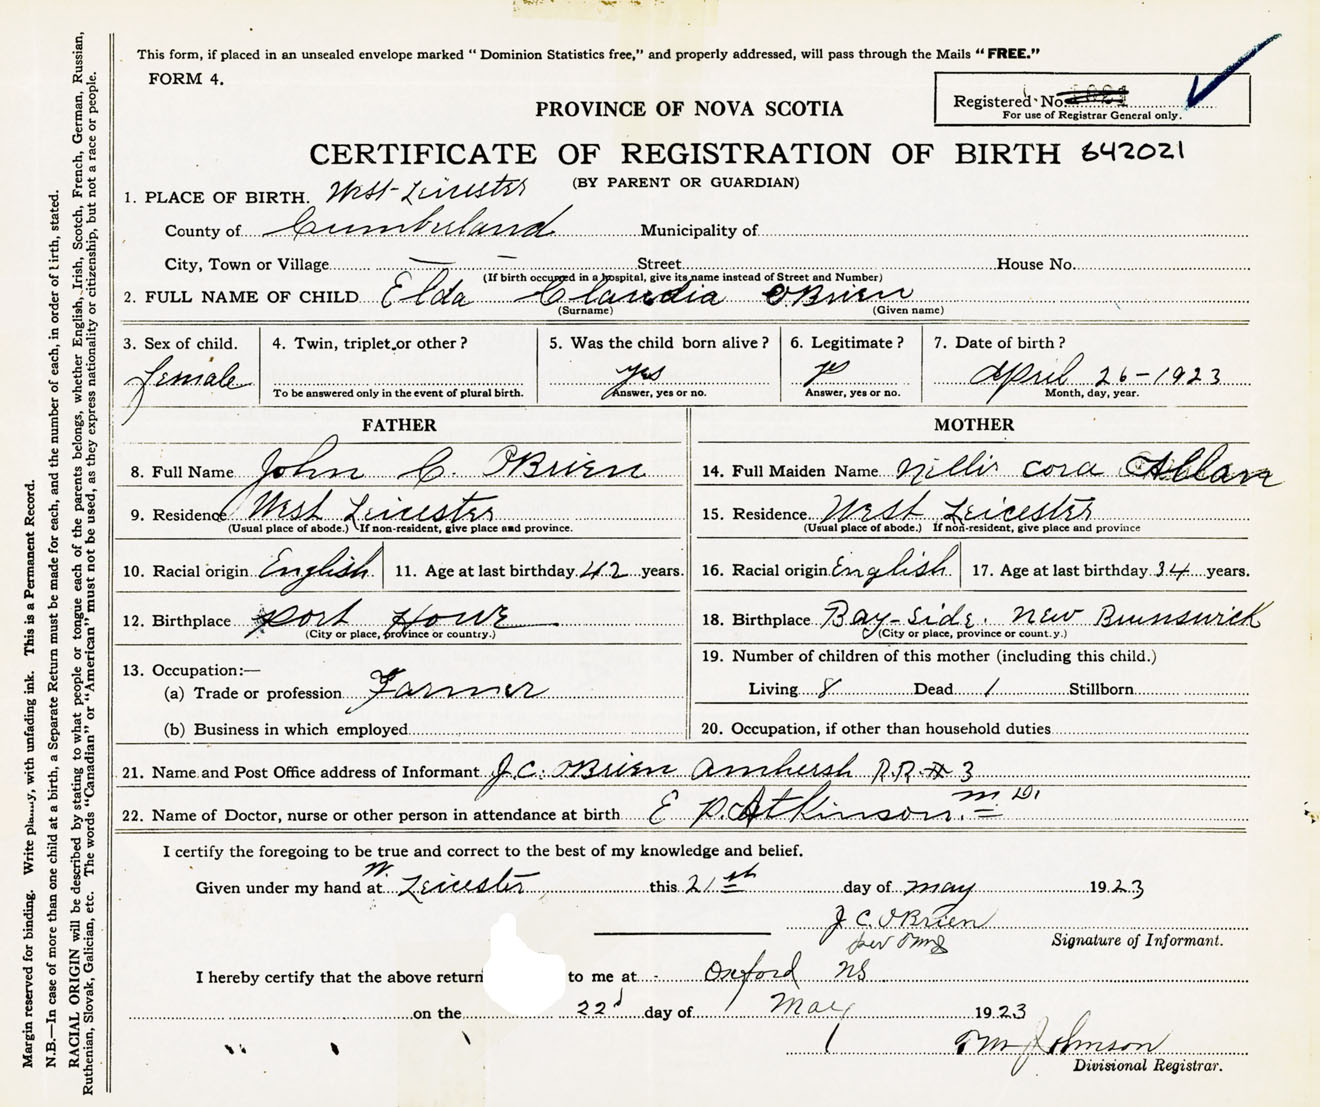 This form, if placed in an unsealed envelope marked “ Dominion Statistics free,” and properly addressed, will pass through the Mails “FREE.”
FORM 4.
Registered No.
For use of Registrar General only.
PROVINCE OF NOVA SCOTIA
CERTIFICATE OF REGISTRATION OF BIRTH 642021
(BY PARENT OR GUARDIAN)
1. PLACE OF BIRTH. West-Leicester
County of Cumberland Municipality of
City, Town or Village Street House No.
(If birth occurred in a hospital, give its name instead of Street and Number)
2. FULL NAME OF CHILD Elda Claudia O'Brien
(Surname) (Given name)
3. Sex of child. 4. Twin, triplet or other? 5. Was the child born alive? 6. Legitimate? 7. Date of birth?
female yes yes April 26-1923
To be answered only in the event of plural birth. Answer, yes or no. Answer, yes or no. Month, day, year.
FATHER
8. Full Name John C. O'Brien
9. Residence West Leicester
(Usual place of abode.) If non-resident, give place and province.
10. Racial origin English 11. Age at last birthday 42 years.
12. Birthplace Port Howe
(City or place, province or country.)
13. Occupation:—
(a) Trade or profession Farmer
(b) Business in which employed
MOTHER
14. Full Maiden Name Nellie Cora
15. Residence West Leicester
(Usual place of abode.) If non-resident, give place and province
16. Racial origin English 17. Age at last birthday 34 years.
18. Birthplace Bay-Side. New Brunswick
(City or place, province or count.y.)
19. Number of children of this mother (including this child.)
Living 8 Dead 1 Stillborn
20. Occupation, if other than household duties
21. Name and Post Office address of Informant J.C. O'Brien Amherst R.R.# 3
22. Name of Doctor, nurse or other person in attendance at birth E P. Atkinson. M.D.
I certify the foregoing to be true and correct to the best of my knowledge and belief.
Given under my hand at W. Leicester this 21st day of May 1923
J.C. O'Brien
per
Signature of Informant.
I hereby certify that the above return to me at Oxford NS
on the 22d day of May 1923
Johnson
Divisional Registrar.
Margin reserved for binding. Write pla....y, with unfading ink. This is a Permanent Record.
N.B.—In case of more than one child at a birth, a Separate Return must be made for each, and the number of each, in order of birth, stated.
RACIAL ORIGIN will be described by stating to what people or tongue each of the parents belongs, whether English, Irish, Scotch, French, German, Russian,
Ruthenian, Slovak, Galician, etc. The words “Canadian” or “American” must not be used, as they express nationality or citizenship, but not a race or people.